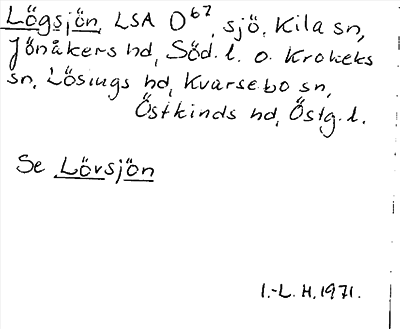 Lögsjön, LSA O⁶⁷, sjö, Kila sn,
Jönåkers hd, Söd. l. o. Krokeks
sn, Lösings hd, Kvarsebo sn,
Östkinds hd, Östg. l.
Se Lövsjön
I.-L. H. 1971.